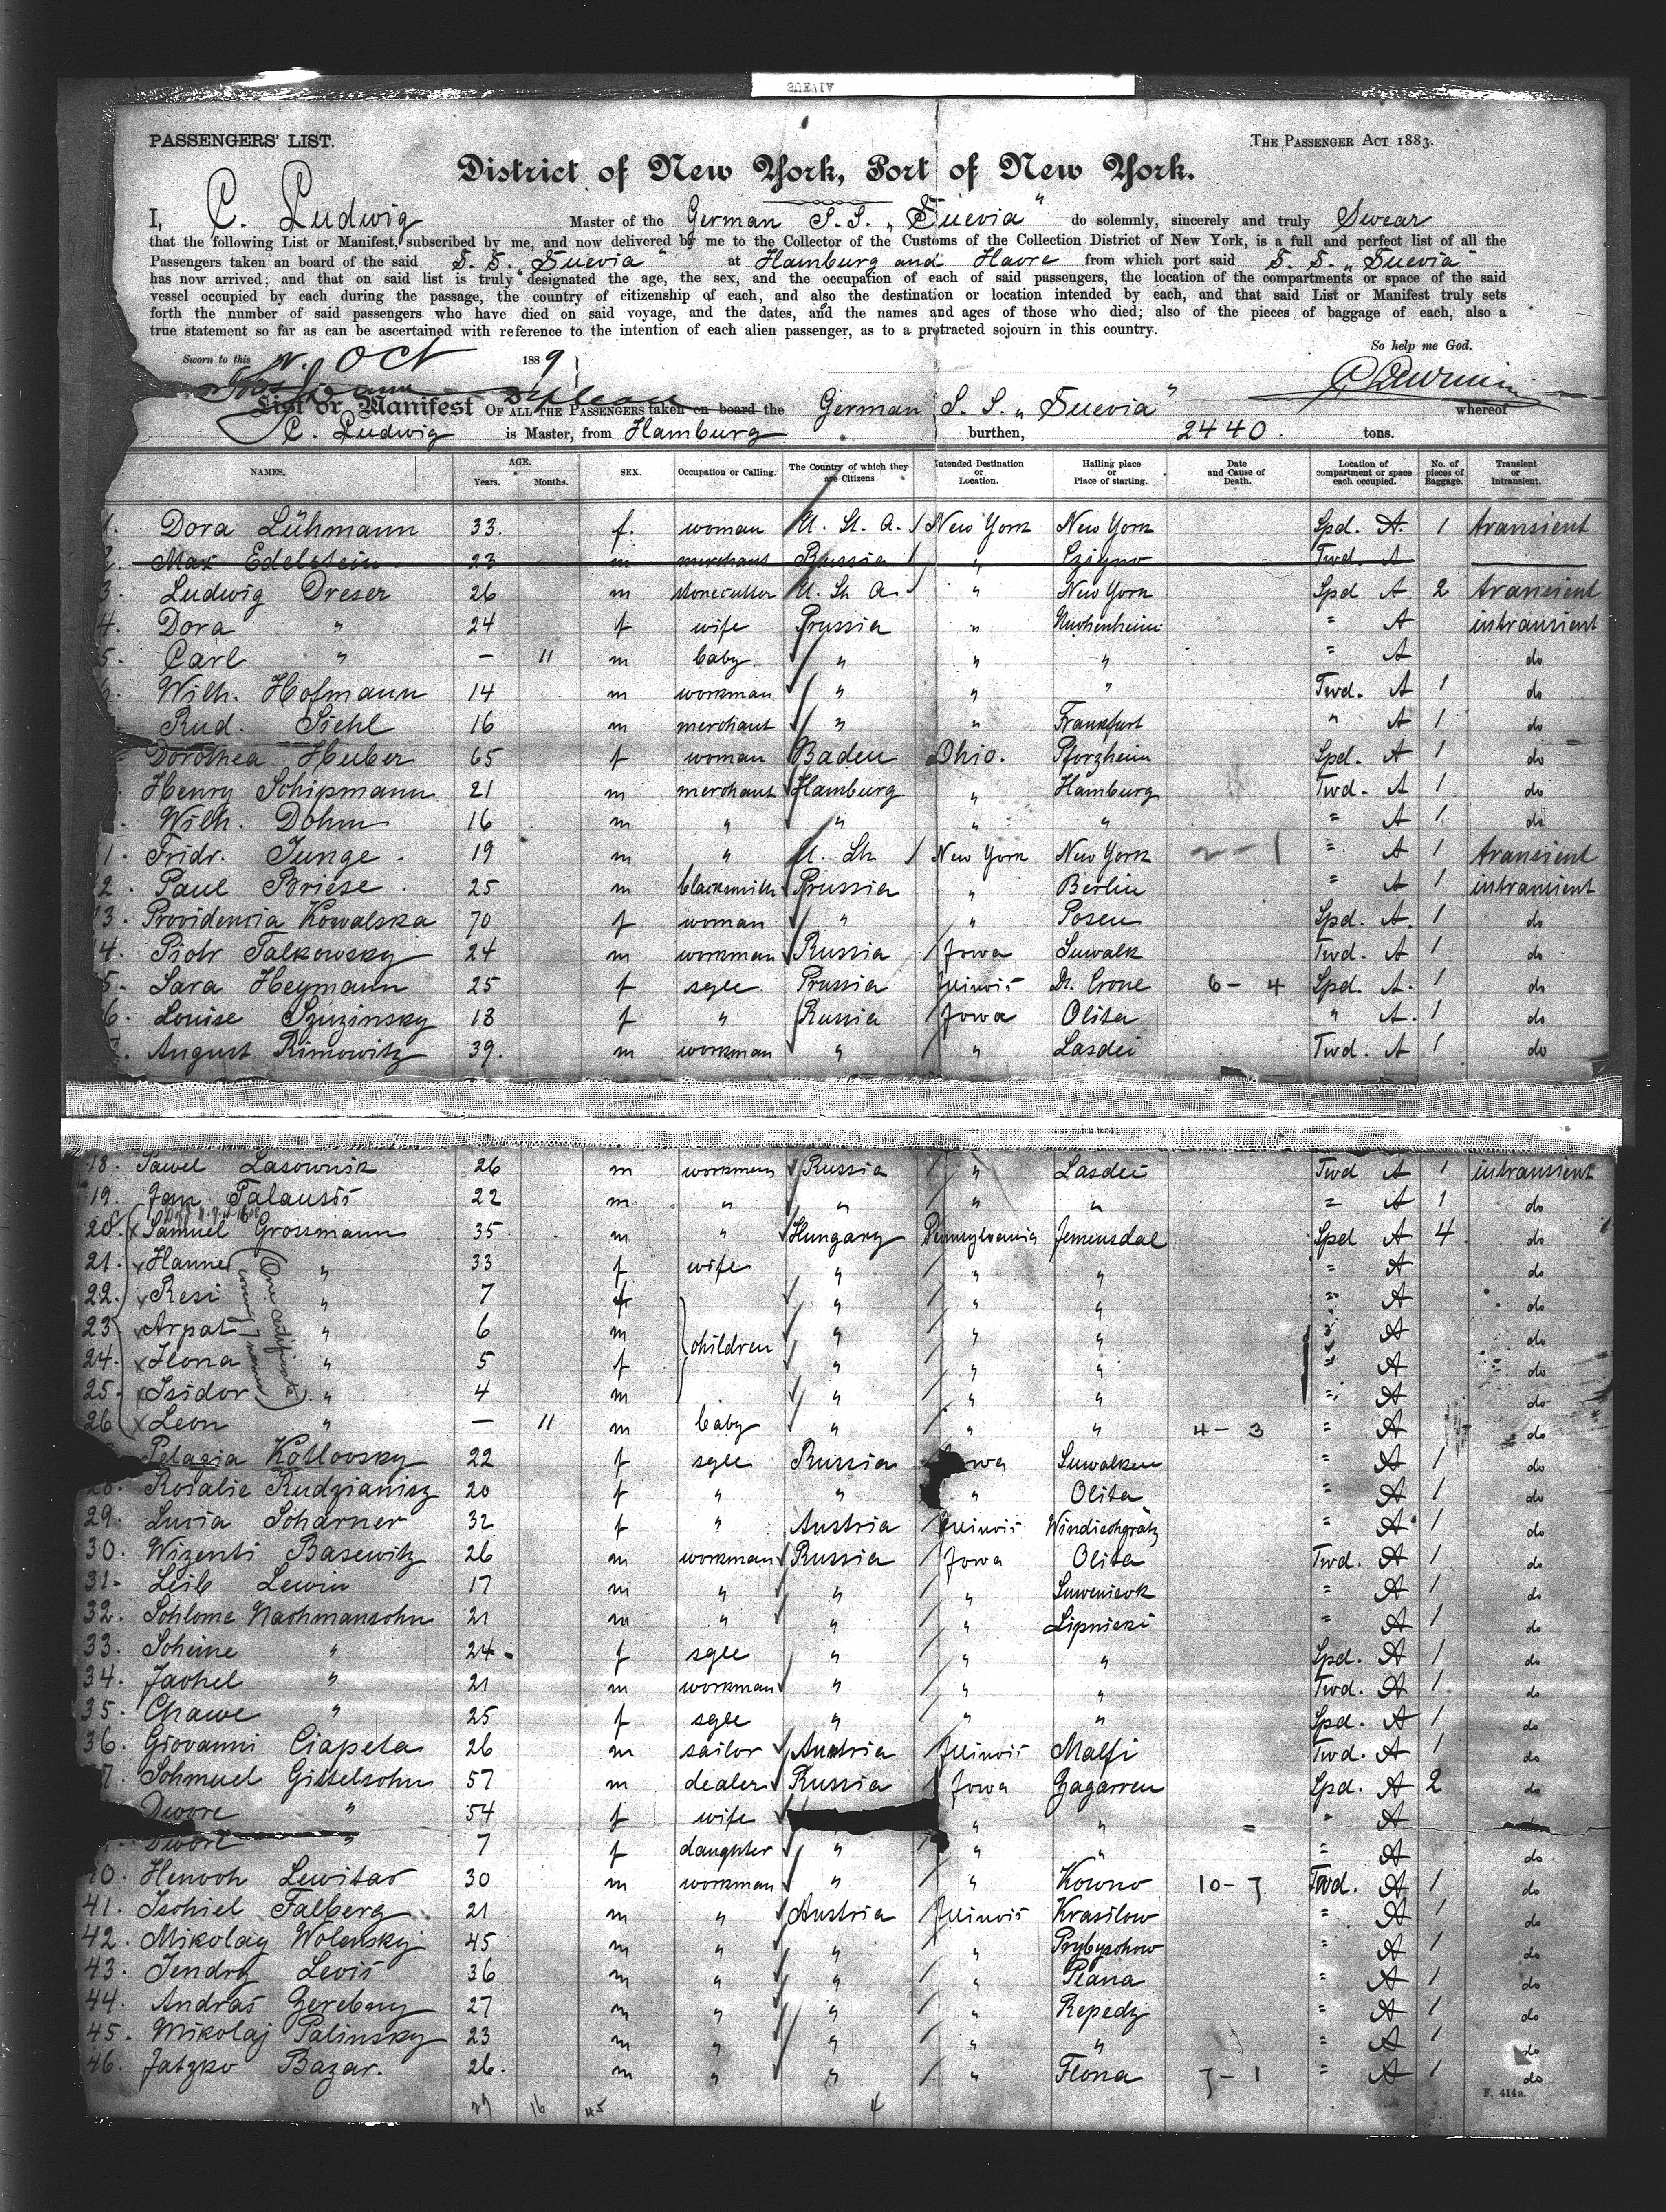 SUEVIA
PASSENGERS' LIST.
THE PASSENGER ACT 1883.
District of New York, Port of New York.
I, C. Ludwig Master of the German S. S. „Suevia" do solemnly, sincerely and truly Swear
that the following List or Manifest, subscribed by me, and now delivered by me to the Collector of the Customs of the Collection District of New York, is a full and perfect list of all the
Passengers taken an board of the said S. S. „Suevia" at Hamburg and Havre from which port said S. S. „Suevia"
has now arrived; and that on said list is truly designated the age, the sex, and the occupation of each of said passengers, the location of the compartments or space of the said
vessel occupied by each during the passage, the country of citizenship of each, and also the destination or location intended by each, and that said List or Manifest truly sets
forth the number of said passengers who have died on said voyage, and the dates, and the names and ages of those who died; also of the pieces of baggage of each, also a
true statement so far as can be ascertained with reference to the intention of each alien passenger, as to a protracted sojourn in this country.
So help me God.
Sworn to this Oct 1889
List or Manifest OF ALL THE PASSENGERS taken on board the German S. S. „Suevia" whereof
C. Ludwig is Master, from Hamburg burthen, 2440. tons.
NAMES. AGE. Years. Months. SEX. Occupation or Calling. The Country of which they are Citizens Intended Destination or Location. Hailing place or Place of starting. Date and Cause of Death. Location of compartment or space each occupied. No. of pieces of Baggage. Transient or Intransient.
1. Dora Lühmann 33. f. woman U. St. A. New York New York Spd. A. 1 transient
2. Max Edelstein 23 m merchant Russia „ Twd. A
3. Ludwig Dreser 26 m stonecutter U. St. A. „ New York Spd A 2 transient
4. Dora „ 24 f wife Prussia „ " A intransient
5. Carl „ — 11 m baby „ „ „ " A do
6. Wilh. Hofmann 14 m workman „ „ „ Twd. A 1 do
Rud. Siehl 16 m merchant „ „ Frankfurt „ A 1 do
Dorothea Huber 65 f woman Baden Ohio. Pforzheim Spd. A 1 do
Henry Schipmann 21 m merchant Hamburg „ Hamburg Twd. A 1 do
Wilh. Dohm 16 m „ „ „ „ " A 1 do
1. Fridr. Junge. 19 m „ U. St. New York New York 2-1 " A 1 transient
2. Paul Briese. 25 m blacksmith Prussia „ Berlin " A 1 intransient
3. Providencia Kowalska 70 f woman „ „ Posen Spd. A. 1 do
4. Piotr Talkowsky 24 m workman Russia Iowa Suwalk Twd. A 1 do
5. Sara Heymann 25 f sgle Prussia Illinois D. Crone 6-4 Spd. A. 1 do
6. Louise Szuzinsky 18 f „ Russia Iowa Olita „ A. 1 do
7. August Rimowitz 39. m workman „ „ Lasdei Twd. A 1 do
18. Pawel Lasownik 26 m workman Russia „ Lasdei Twd A 1 intransient
19. Jan Talausis 22 m „ „ „ „ " A 1 do
20. Samuel Grossmann 35. m „ Hungary Pennsylvania Jemensdal Spd A 4 do
21. Hanne „ 33 f wife „ „ „ " A do
22. Resi „ 7 f „ „ „ " A do
23. Arpat „ 6 m children „ „ „ " A do
24. Ilona „ 5 f „ „ „ " A do
25. Isidor „ 4 m „ „ „ " A do
One certificate covering 7 names
26 Leon „ — 11 m baby „ „ „ 4-3 " A do
Pelagia Kotlovsky 22 f sgle Russia Iowa Suwalken " A 1 do
28. Rosalie Rudzianisz 20 f „ „ „ Olita " A 1 do
29. Lucia Scharner 32 f „ Austria Illinois Windischgrätz " A 1 do
30. Wizenti Basewitz 26 m workman Russia Iowa Olita Twd. A 1 do
31. Leib Lewin 17 m „ „ „ " A 1 do
32. Schlome Nachmansohn 21 m „ „ „ Lipnicki " A 1 do
33. Scheine „ 24. f sgle „ „ „ Spd. A 1 do
34. Jachel „ 21 m workman „ „ „ Twd. A 1. do
35. Chawe „ 25 f sgle „ „ „ Spd. A 1 do
36. Giovanni Ciapeta 26 m sailor Austria Illinois Malfi Twd. A 1 do
7. Schmuel Gittelsohn 57 m dealer Russia Iowa Zagarren Spd. A 2 do
Dwore „ 54 f wife „ „ " A
Dwore „ 7 f daughter „ „ „ " A do
40. Henoch Lewitas 30 m workman „ „ Kowno 10-7 Twd. A 1 do
41. Ischiel Falberg 21 m „ Austria Illinois Krasilow " A 1 do
42. Mikolay Wolensky 45 m „ „ „ Prybyschow " A 1 do
43. Jendry Levis 36 m „ „ „ Peana " A 1 do
44. Andras Zerebny 27 m „ „ „ Repedy " A 1 do
45. Mikolaj Palinsky 23 m „ „ „ „ " A 1 do
46. Jatzko Bazar. 26. m „ „ „ Flona 7-1 " A 1 do
F. 414a.
29 16 45 4